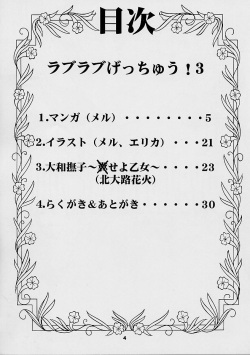 目次
ラブラブげっちゅう！3
1.マンガ（メル）・・・・・・・・5
2.イラスト（メル、エリカ）・・・21
3.大和撫子～翼せよ乙女～・・・・23
（北大路花火）
4.らくがき&あとがき・・・・・・30
4